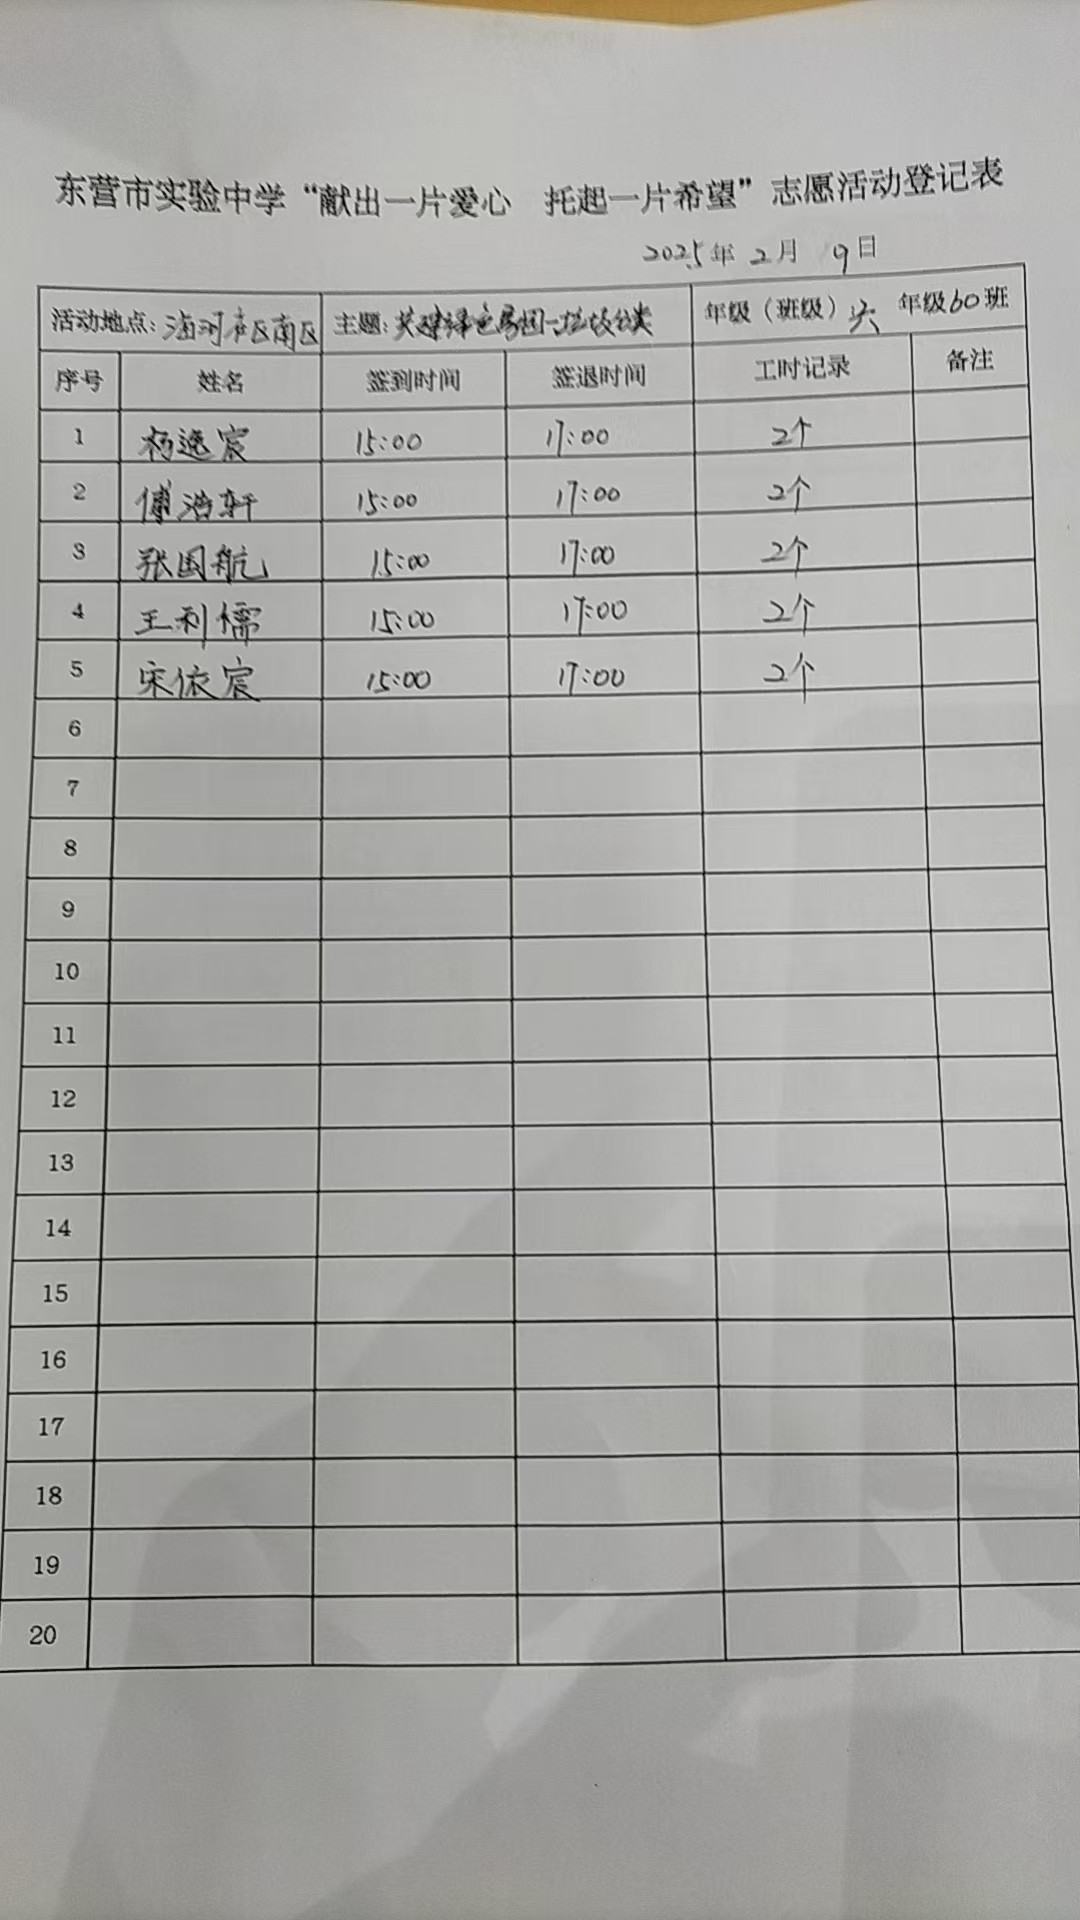 东营市实验中学“献出一片爱心 托起一片希望”志愿活动登记表
2025年 2月 9日
活动地点: 海河社区南区 主题: 共建绿色家园—垃圾分类 年级（班级）六 年级60班
序号 姓名 签到时间 签退时间 工时记录 备注
1 杨逸宸 15:00 17:00 2个
2 傅浩轩 15:00 17:00 2个
3 张国航 15:00 17:00 2个
4 王利儒 15:00 17:00 2个
5 宋依宸 15:00 17:00 2个
6
7
8
9
10
11
12
13
14
15
16
17
18
19
20